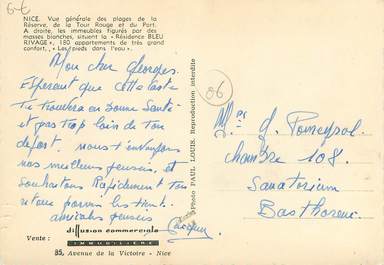 6-E
NICE. Vue générale des plages de la
Réserve, de la Tour Rouge et du Port.
A droite, les immeubles figurés par des
masses blanches, situent la « Résidence BLEU
RIVAGE », 180 appartements de très grand
confort, « Les pieds dans l'eau ».
Mon cher Georges.
Esperant que cette carte
te trouvera en bonne Santé
et pas trop loin de ton
départ. nous t'envoyons
nos meilleurs pensées, et
souhaitons Rapidement ton
retour parmi les
amicales pensées
Vente : diffusion commerciale
IMMOBILIERE
85, Avenue de la Victoire - Nice
Photo PAUL LOUIS. Reproduction interdite
06
Mr G. Pomeyrol
chambre 108.
Sanatorium